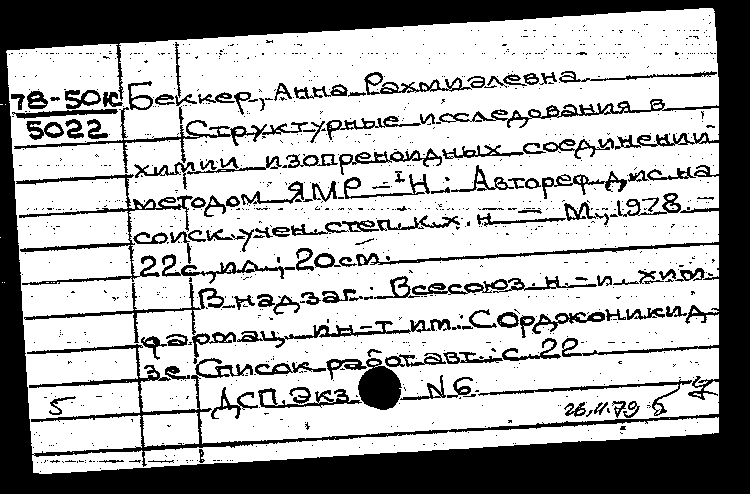 78-50к Беккер, Анна Рахмиэлевна
5022 Структурные исследования в
химии изопреноидных соединений
методом ЯМР -¹Н: Автореф. дис. на
соиск. учен. степ. к. х. н. - М., 1978. -
22с., ил.; 20см.
В надзаг.: Всесоюз. н.-и. хим.
фармац. ин-т им. С. Орджоникид-
зе Список работ авт.: с. 22
5 ДСП. Экз № 6
26.11.79